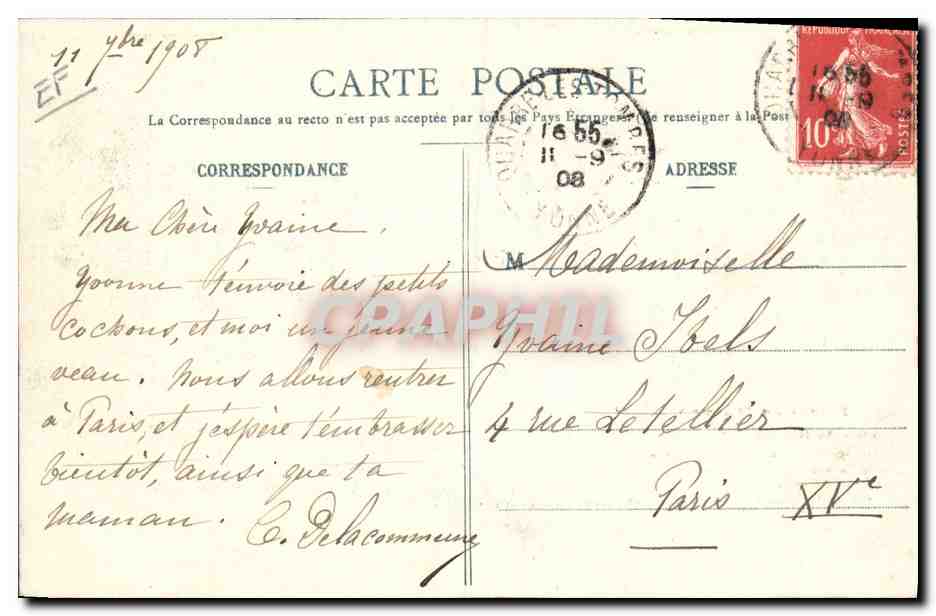 11 7bre 1908
EF
CARTE POSTALE
La Correspondance au recto n'est pas acceptée par tous les Pays Etrangers (Se renseigner à la Post
CORRESPONDANCE
Ma Chère Yvaine,
Yvonne t'envoie des petits
cochons, et moi un jeune
veau. Nous allons rentrer
à Paris, et j'espère t'embrasser
bientôt, ainsi que ta
maman.
C. Delacommune
ADRESSE
M Mademoiselle
Yvaine Ibels
4 rue Letellier
Paris XVe
OUARRE-LES-TOMBES
16 55
11 -9
08
YONNE
REPUBLIQUE FRANÇAISE
10c
POSTES
16 55
11 -9
08
CPARHIL